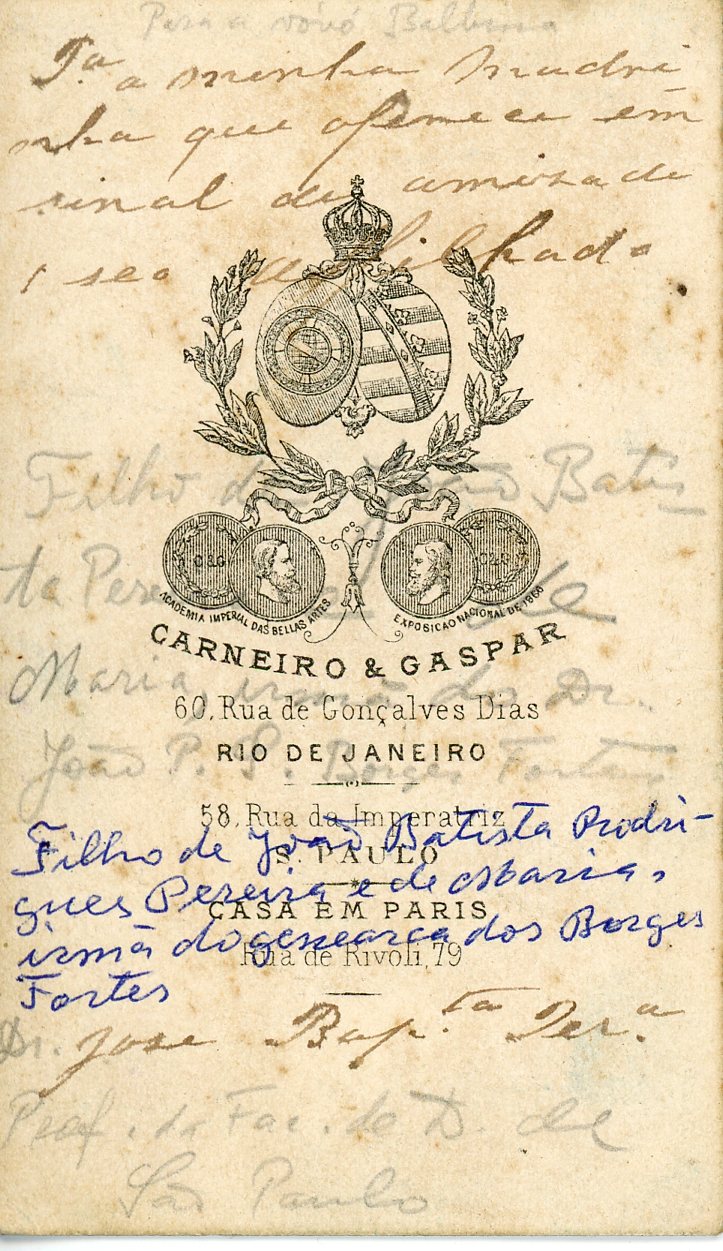 Para a vóvó Balbina
P.ª a minha madri
nha que oferece em
sinal de amizade
seo afilhado
Filho de João Batis-
ta Pereira e de
Maria, irmã do Dr.
João P. S. Borges Fortes
C&G
C&G
ACADEMIA IMPERIAL DAS BELLAS ARTES
EXPOSICAO NACIONAL DE 1866
CARNEIRO & GASPAR
60, Rua de Gonçalves Dias
RIO DE JANEIRO
58, Rua da Imperatriz
S. PAULO
CASA EM PARIS
Rua de Rivoli, 79
Filho de João Batista Rodri-
gues Pereira e de Maria,
irmã do genearca dos Borges
Fortes
Dr. Jose Bap.ta Per.a
Prof. da Fac. de D. de
São Paulo